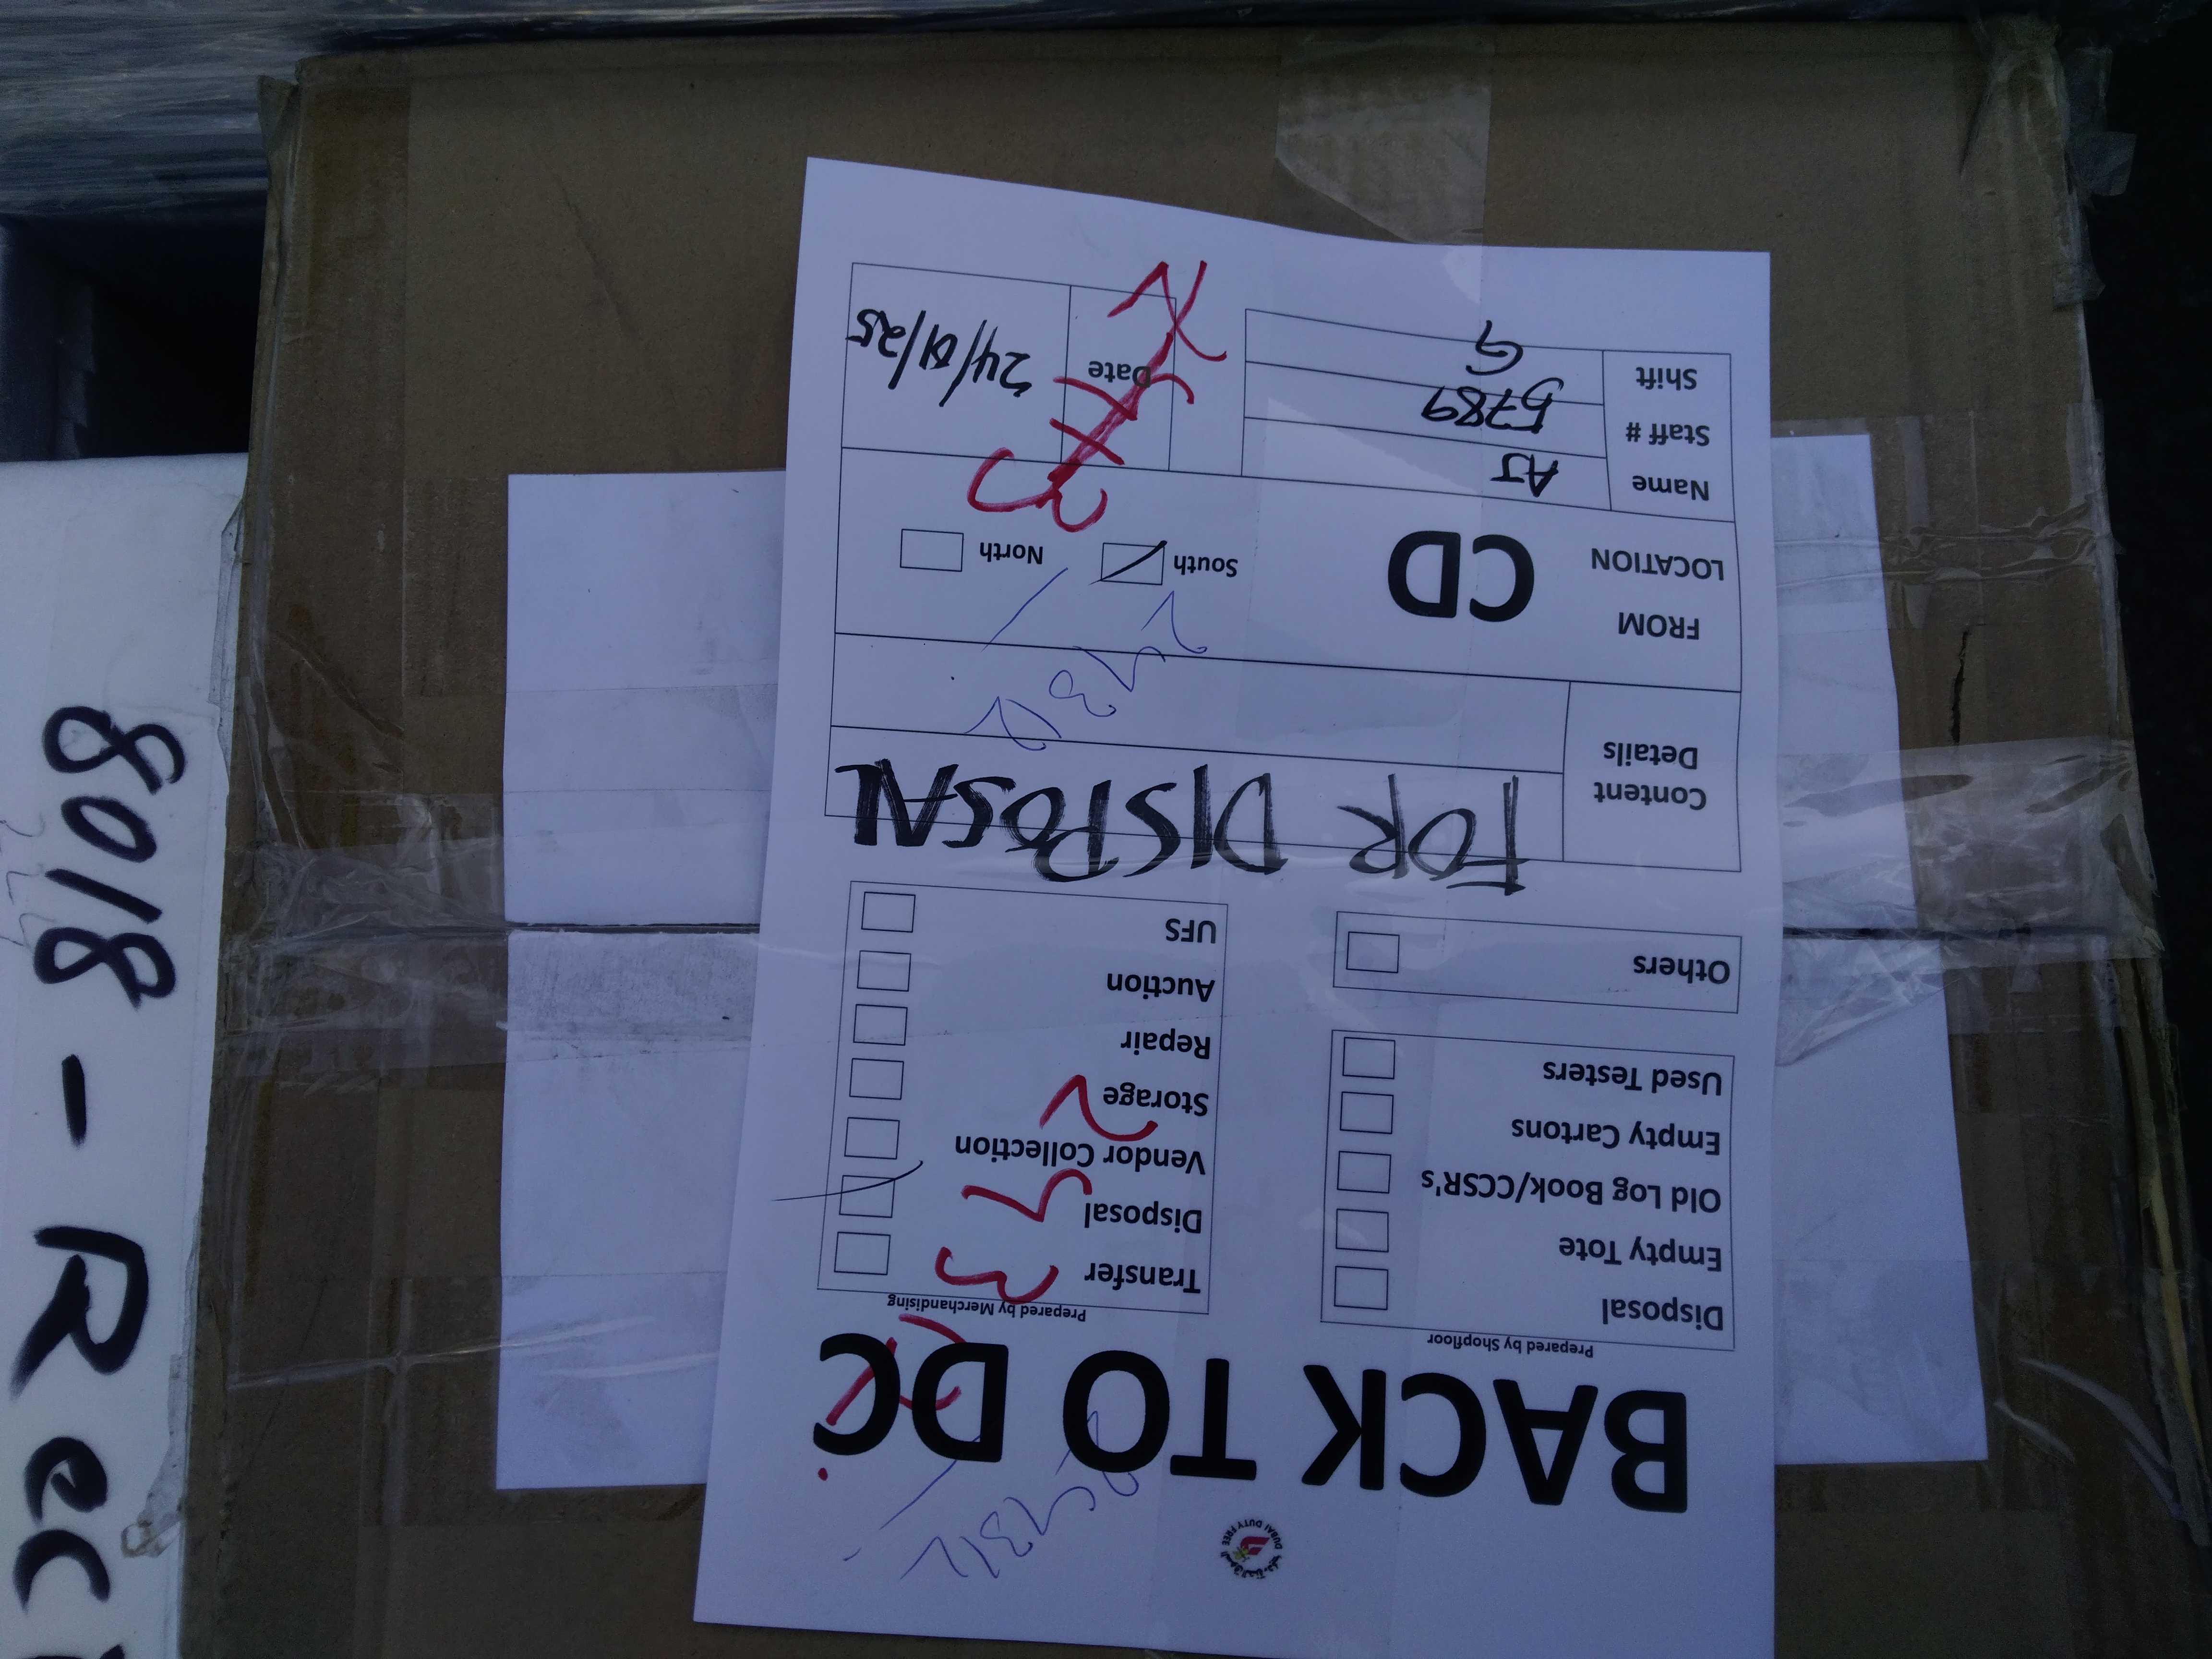 DUBAI DUTY FREE
BACK TO DC
Prepared by Shopfloor
Disposal
Empty Tote
Old Log Book/CCSR's
Empty Cartons
Used Testers
Others
Prepared by Merchandising
Transfer
Disposal
Vendor Collection
Storage
Repair
Auction
UFS
Content Details
FOR DISPOSAL
FROM LOCATION
CD
South
North
Name AJ
Staff # 5789
Shift G
Date 24/01/25
8018 - Rec